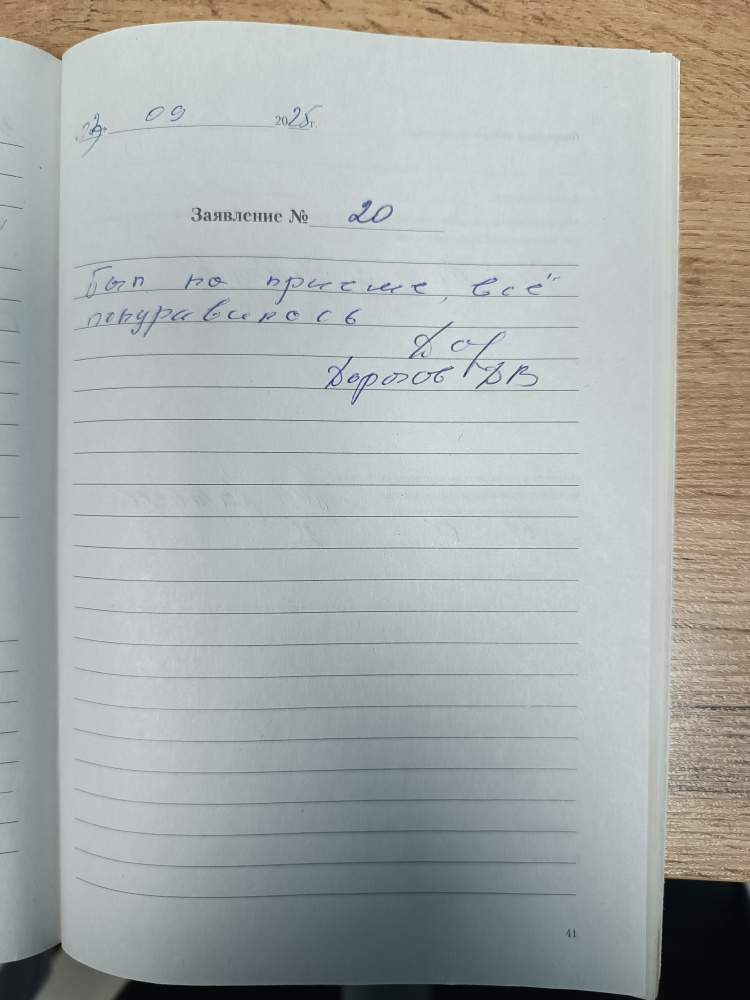 09 2025г.
Заявление № 20
Был на приеме, всё
понуравилось
Дор
ДВ
41